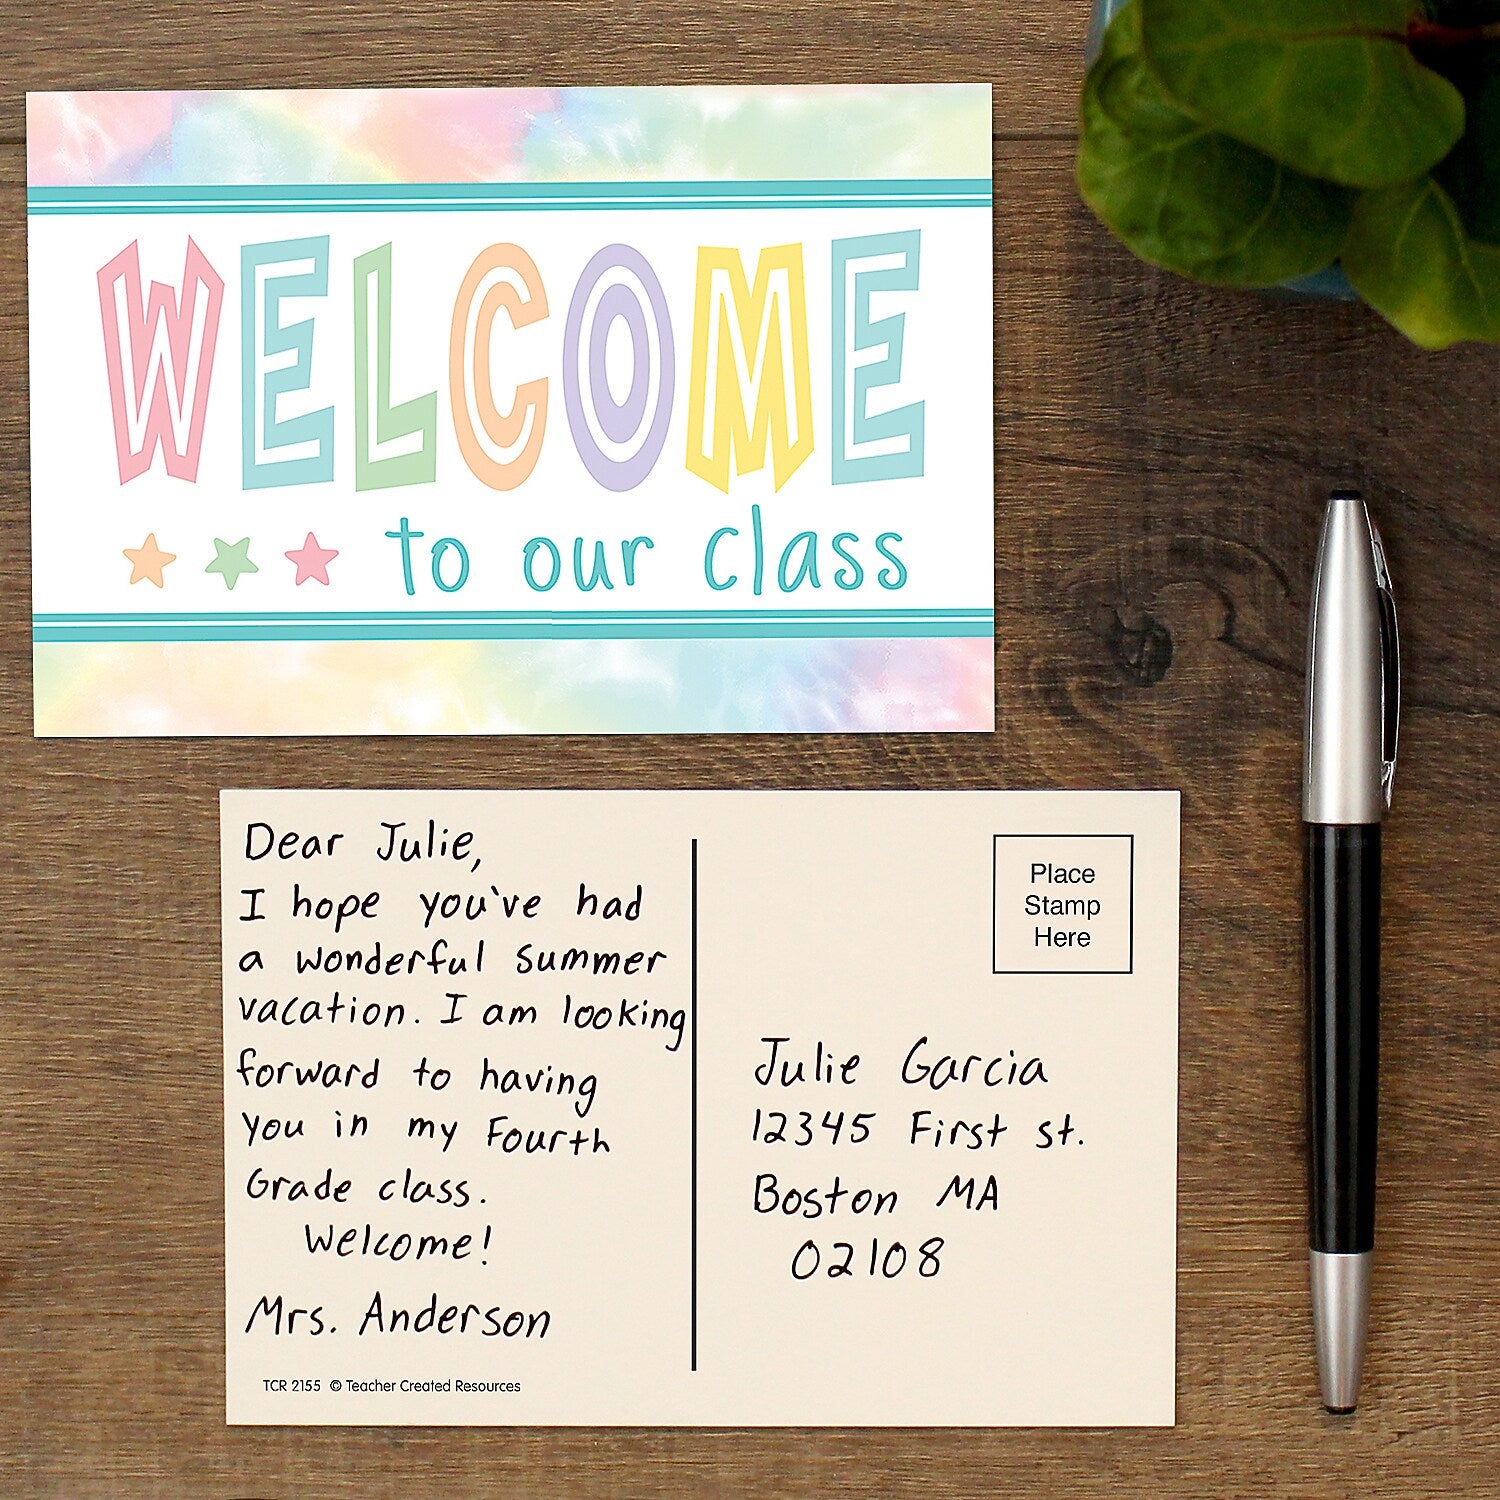 WELCOME
to our class
Dear Julie,
I hope you've had
a wonderful summer
vacation. I am looking
forward to having
you in my Fourth
Grade class.
Welcome!
Mrs. Anderson
TCR 2155 © Teacher Created Resources
Place
Stamp
Here
Julie Garcia
12345 First st.
Boston MA
02108